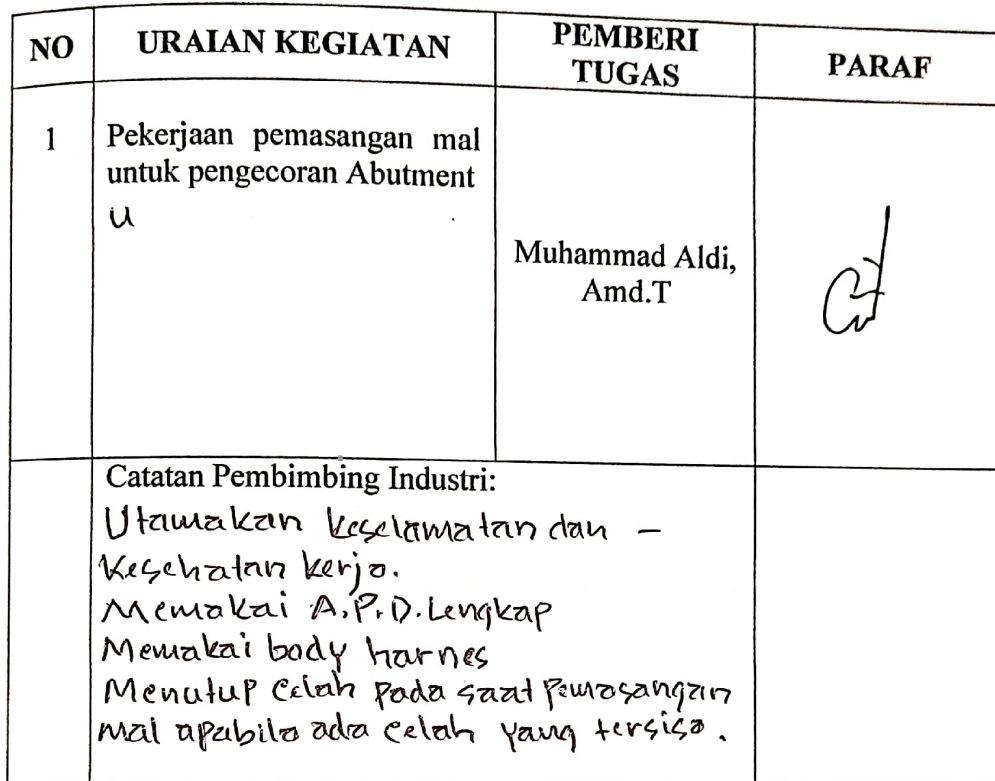 NO
URAIAN KEGIATAN
PEMBERI
TUGAS
PARAF
1
Pekerjaan pemasangan mal
untuk pengecoran Abutment
u
Muhammad Aldi,
Amd.T
Catatan Pembimbing Industri:
Utamakan keselamatan dan –
Kesehatan kerja.
Memakai A.P.D. Lengkap
Memakai body harnes
Menutup celah pada saat pemasangan
mal apabila ada celah yang tersisa.